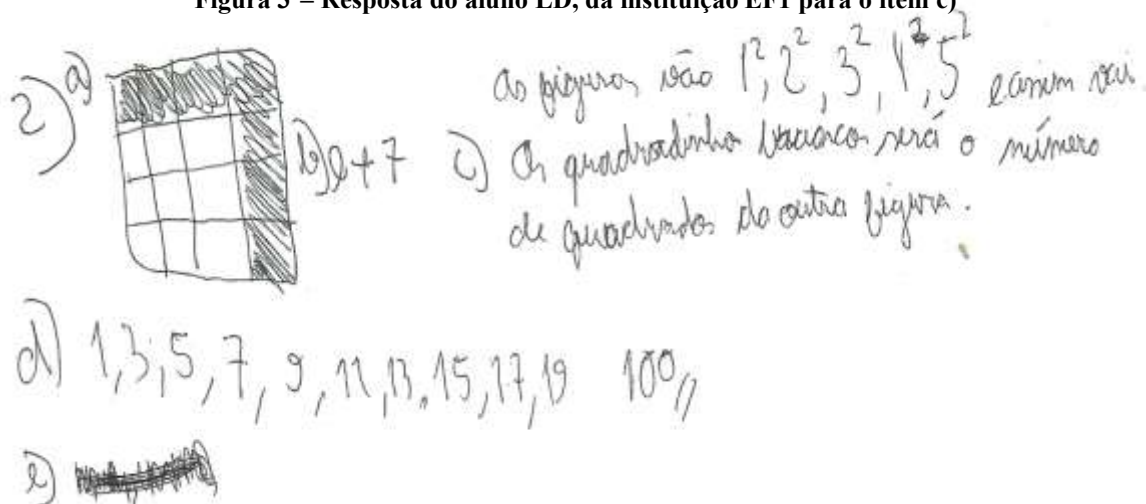 Figura 3 – Resposta do aluno LD, da instituição EF1 para o item c)
2) a)
b) 9+7
as figuras vão 1², 2², 3², 4², 5² e assim vai
c) Os quadradinhos brancos será o número
de quadrados da outra figura.
d) 1, 3, 5, 7, 9, 11, 13, 15, 17, 19 100//
e)